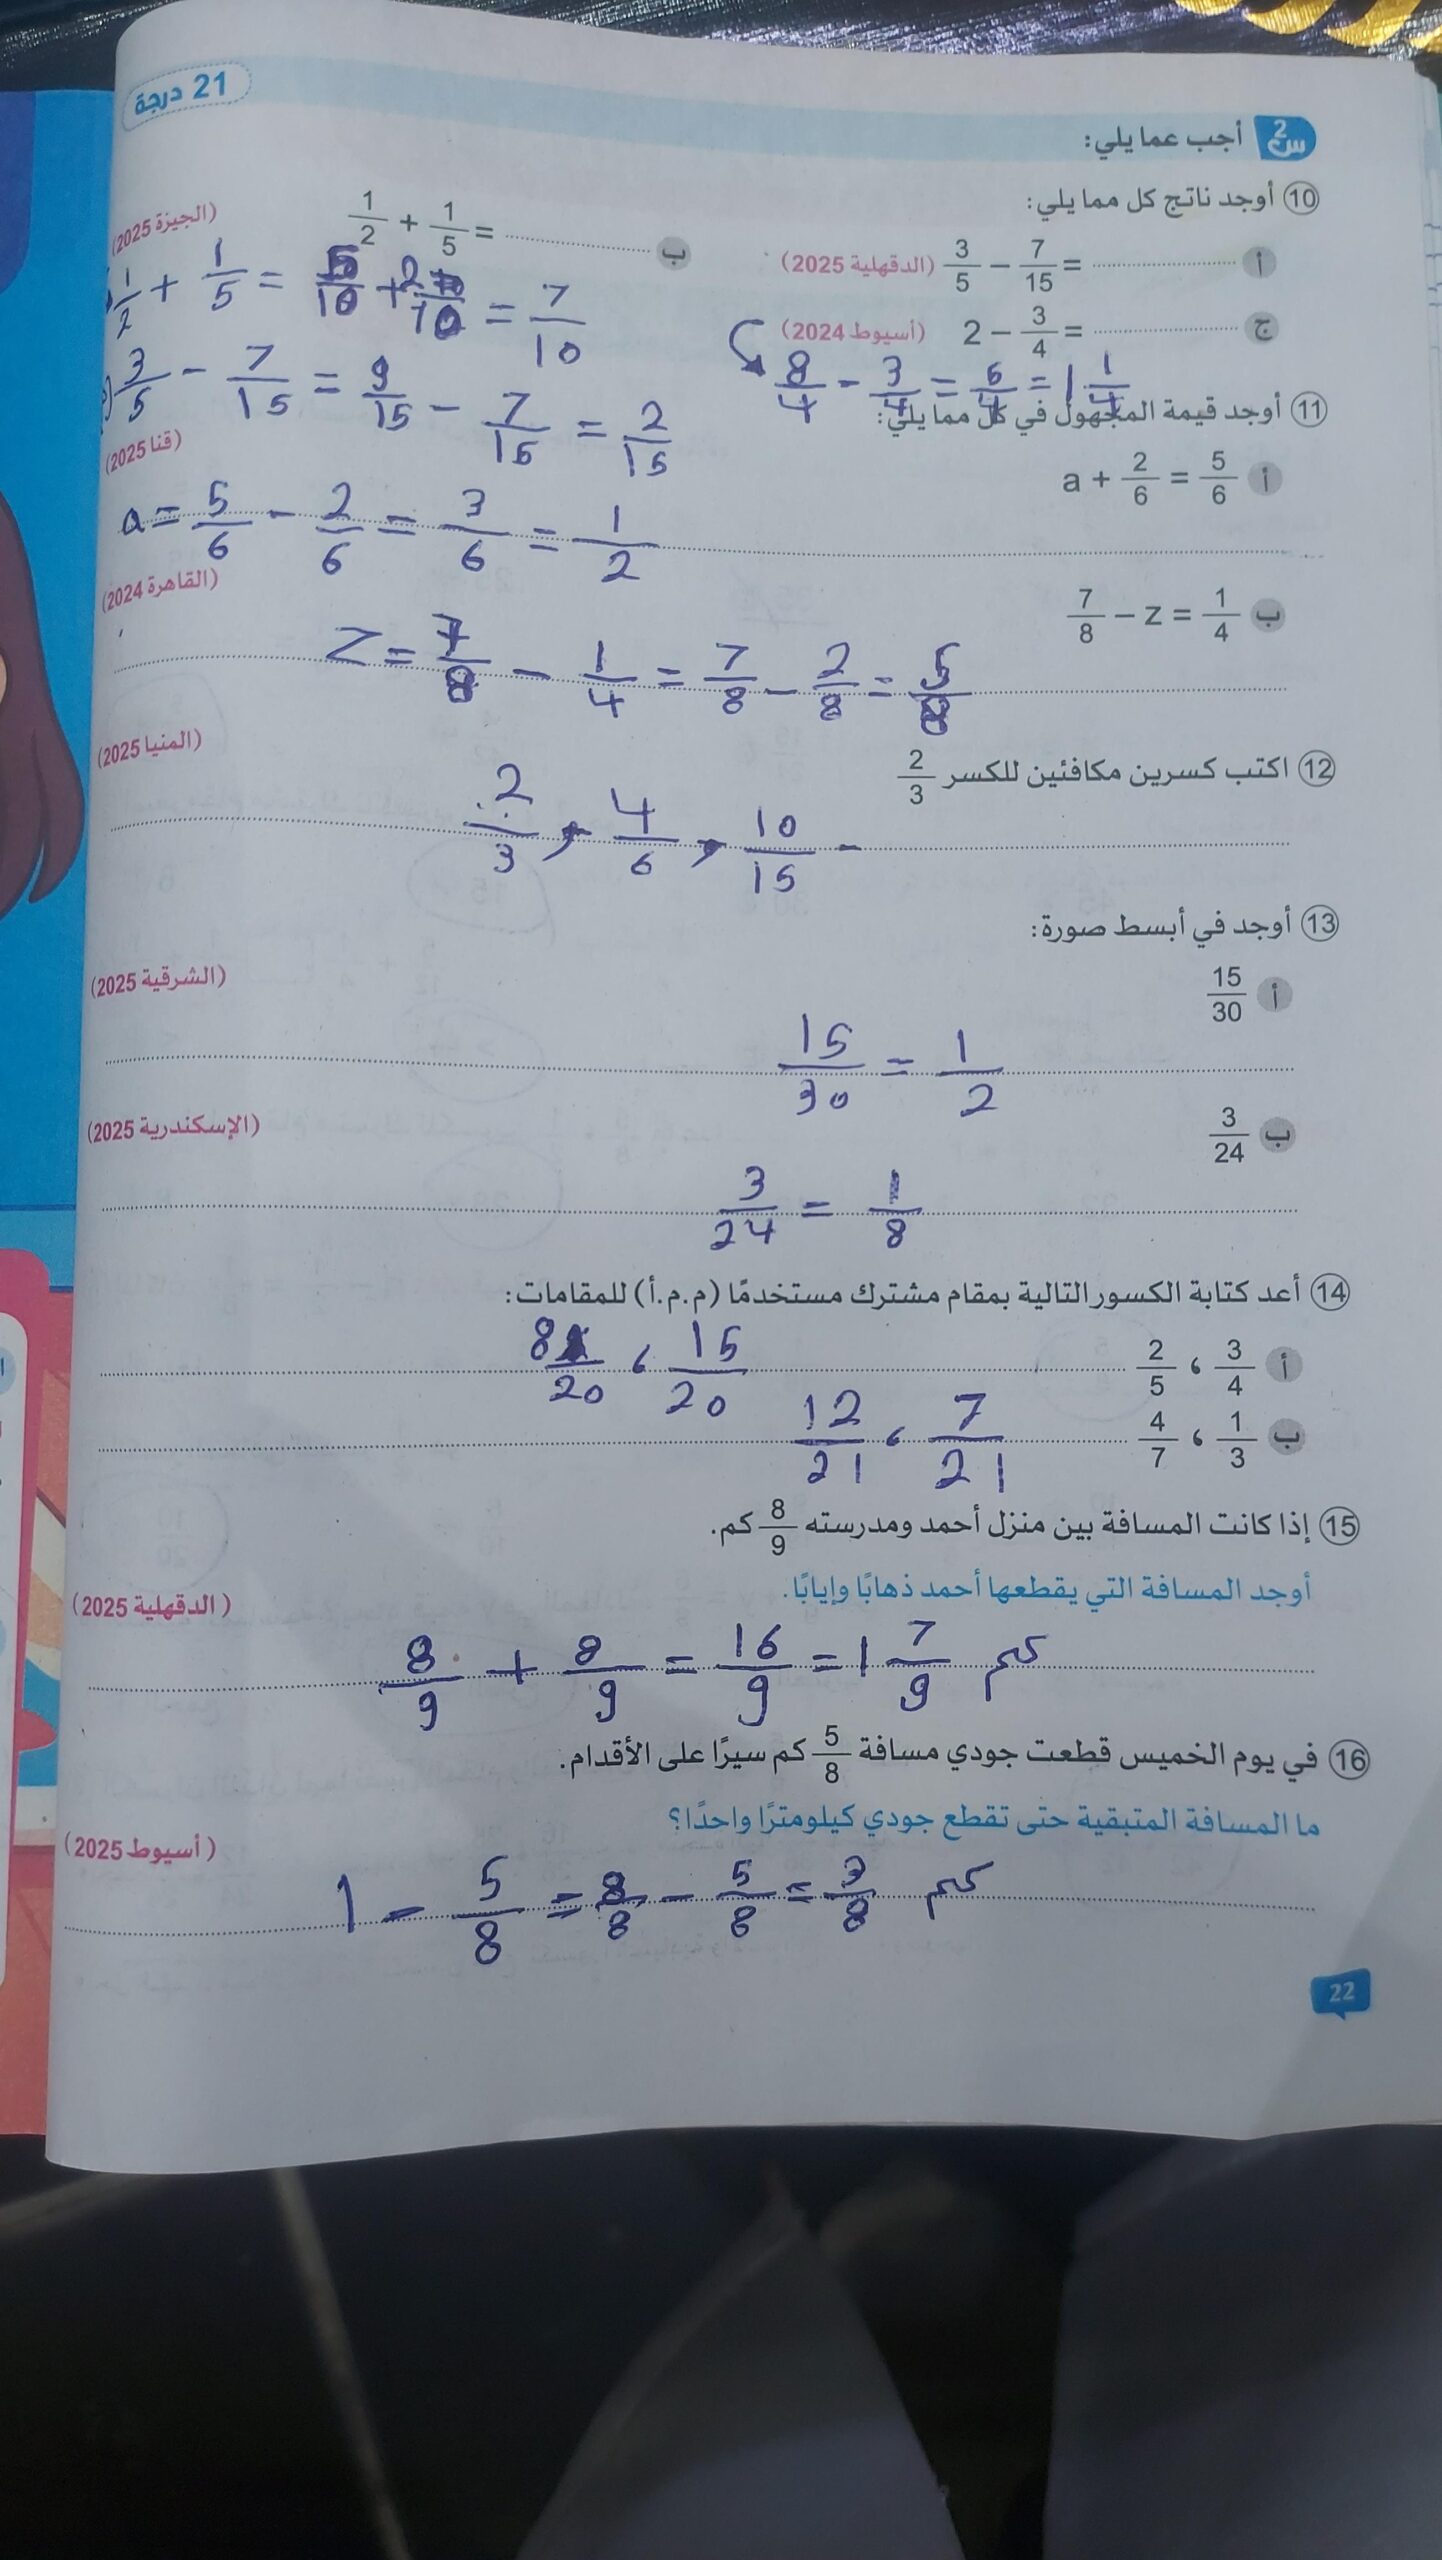 21 درجة
س2 أجب عما يلي:
10 أوجد ناتج كل مما يلي:
أ 3/5 − 7/15 = ........ (الدقهلية 2025)
ب 1/2 + 1/5 = ........ (الجيزة 2025)
1/2 + 1/5 = 5/10 + 2/10 = 7/10
ج 2 − 3/4 = ........ (أسيوط 2024)
8/4 − 3/4 = 5/4 = 1 1/4
3/5 − 7/15 = 9/15 − 7/15 = 2/15
11 أوجد قيمة المجهول في كل مما يلي:
أ a + 2/6 = 5/6 (قنا 2025)
a = 5/6 − 2/6 = 3/6 = 1/2
ب 7/8 − z = 1/4 (القاهرة 2024)
Z = 7/8 − 1/4 = 7/8 − 2/8 = 5/8
12 اكتب كسرين مكافئين للكسر 2/3 (المنيا 2025)
2/3 , 4/6 , 10/15 -
13 أوجد في أبسط صورة:
أ 15/30 (الشرقية 2025)
15/30 = 1/2
ب 3/24 (الإسكندرية 2025)
3/24 = 1/8
14 أعد كتابة الكسور التالية بمقام مشترك مستخدمًا (م.م.أ) للمقامات:
أ 3/4 ، 2/5 15/20 ، 8/20
ب 1/3 ، 4/7 7/21 ، 12/21
15 إذا كانت المسافة بين منزل أحمد ومدرسته 8/9 كم.
أوجد المسافة التي يقطعها أحمد ذهابًا وإيابًا. (الدقهلية 2025)
8/9 + 8/9 = 16/9 = 1 7/9 كم
16 في يوم الخميس قطعت جودي مسافة 5/8 كم سيرًا على الأقدام.
ما المسافة المتبقية حتى تقطع جودي كيلومترًا واحدًا؟ (أسيوط 2025)
1 − 5/8 = 8/8 − 5/8 = 3/8 كم
22